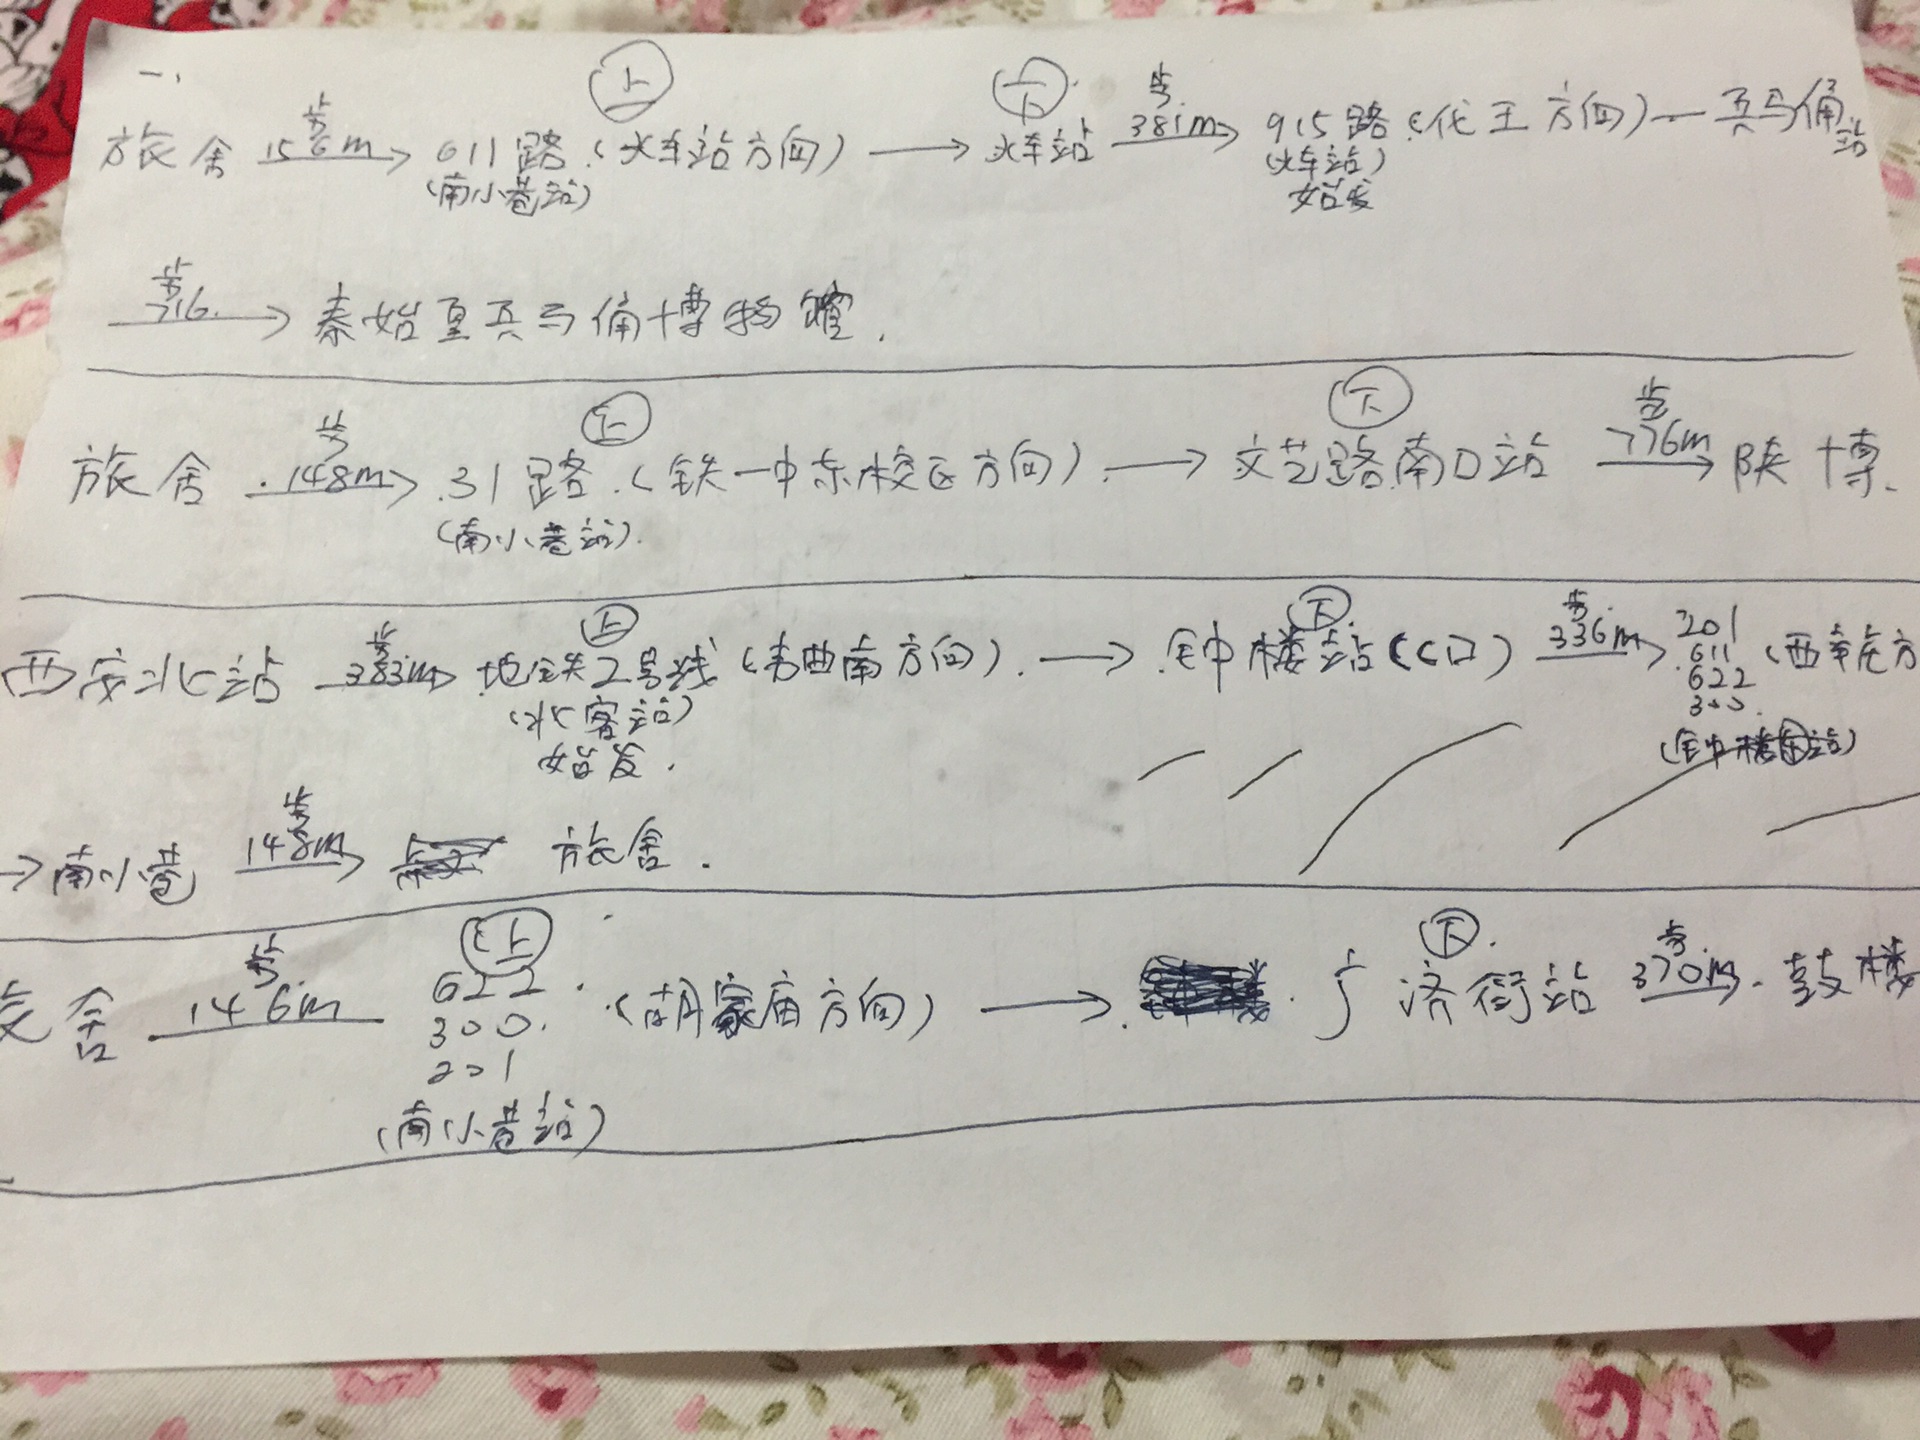 一、
上 下
步 步
旅舍 156m→ 611路(火车站方向) → 火车站 381m→ 915路(代王方向)— 兵马俑站
(南小巷站) (火车站)
始发
步
716. → 秦始皇兵马俑博物馆.
步 上 下 步
旅舍 148m→ 31路.(铁一中东校区方向). → 文艺路南口站 776m→ 陕博.
(南小巷站).
步 上 下 步
西安北站 383m→ 地铁2号线(韦曲南方向). → 钟楼站(C口) 336m→ 201
611 (西辛庄方
622
300.
(北客站) (钟楼南站)
始发.
步
→南小巷 148m→ 旅舍.
步 上 下 步
旅舍 146m 622. (胡家庙方向) → 广济街站 370m→. 鼓楼
300.
201
(南小巷站)